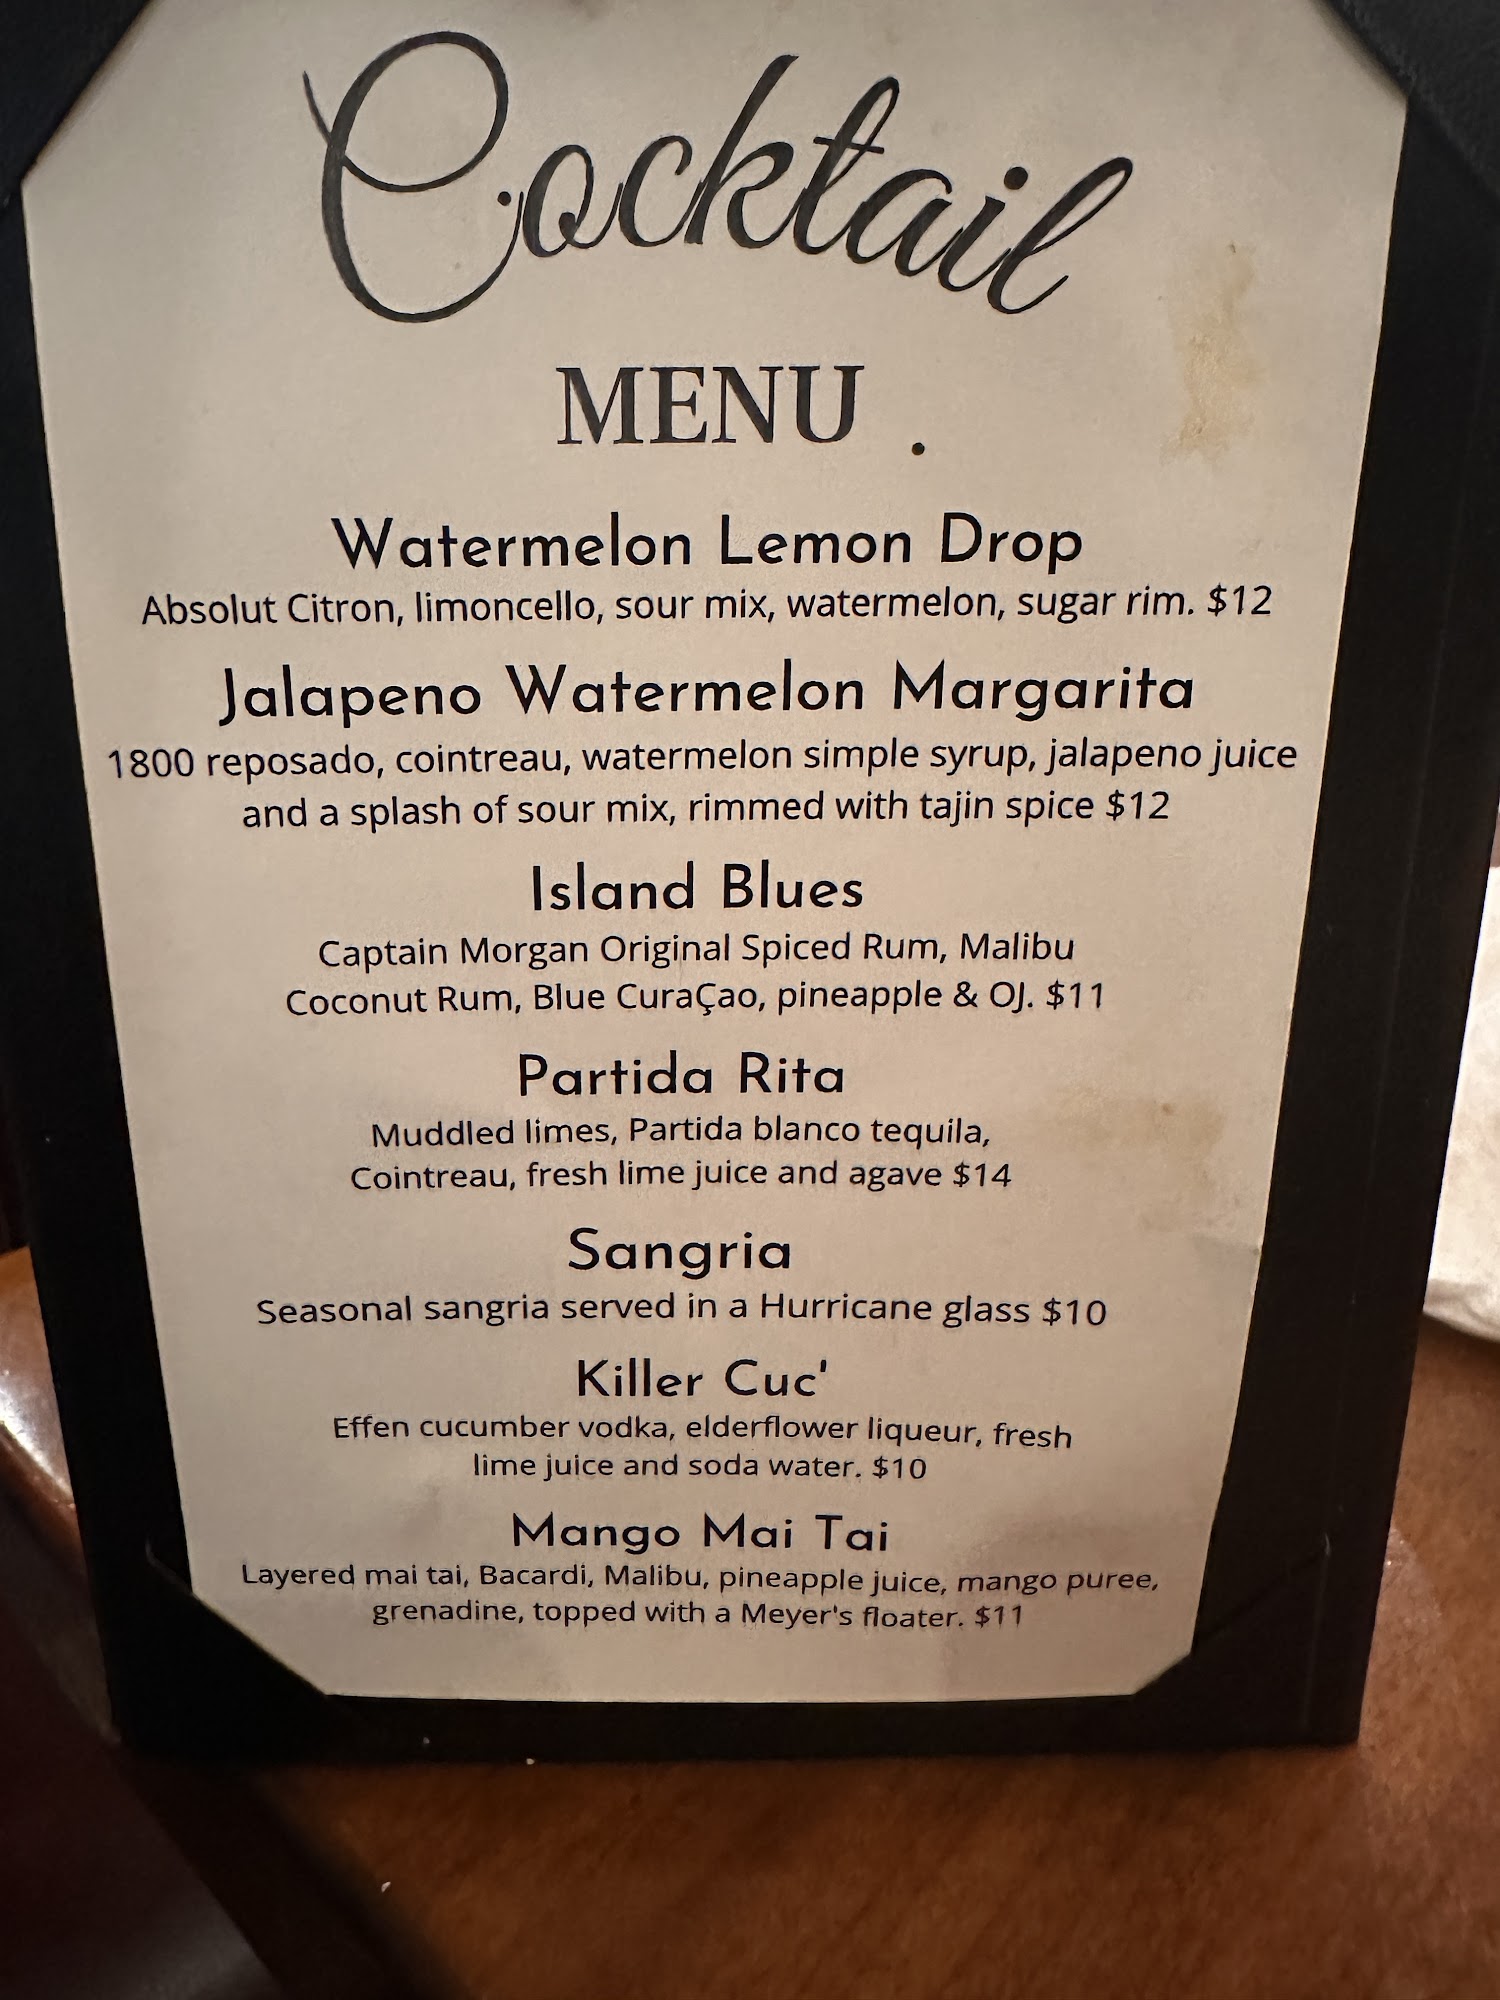 Cocktail
MENU .
Watermelon Lemon Drop
Absolut Citron, limoncello, sour mix, watermelon, sugar rim. $12
Jalapeno Watermelon Margarita
1800 reposado, cointreau, watermelon simple syrup, jalapeno juice
and a splash of sour mix, rimmed with tajin spice $12
Island Blues
Captain Morgan Original Spiced Rum, Malibu
Coconut Rum, Blue CuraÇao, pineapple & OJ. $11
Partida Rita
Muddled limes, Partida blanco tequila,
Cointreau, fresh lime juice and agave $14
Sangria
Seasonal sangria served in a Hurricane glass $10
Killer Cuc'
Effen cucumber vodka, elderflower liqueur, fresh
lime juice and soda water. $10
Mango Mai Tai
Layered mai tai, Bacardi, Malibu, pineapple juice, mango puree,
grenadine, topped with a Meyer's floater. $11